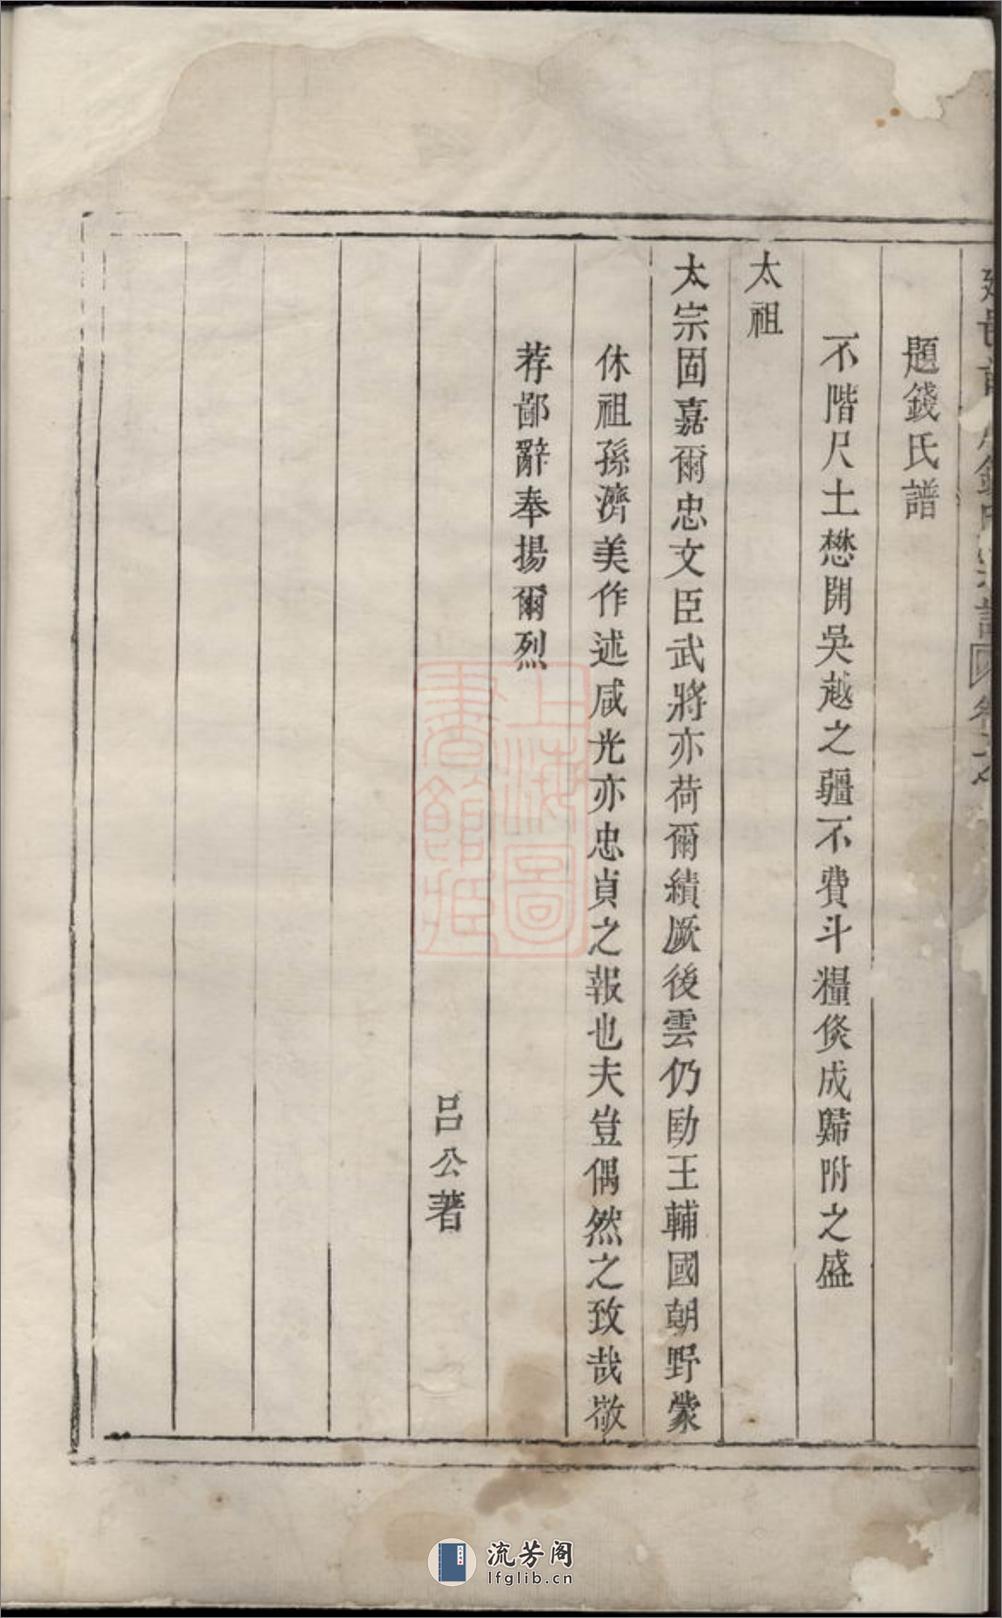 題錢氏譜
不階尺土懋開吳越之疆不費斗糧倐成歸附之盛
太祖
太宗固嘉爾忠文臣武將亦荷爾績厥後雲仍勛王輔國朝野蒙
休祖孫濟美作述咸光亦忠貞之報也夫豈偶然之致哉敬
荐鄙辭奉揚爾烈
呂公著
上海圖
書館藏
流芳阁
lfglib.cn